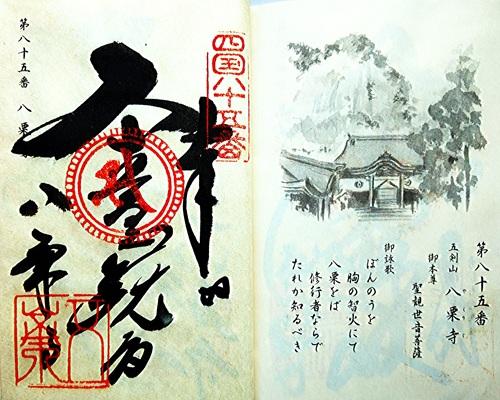 第八十五番
五剣山 八栗寺
やくりじ
御本尊
聖観世音菩薩
御詠歌
ぼんのうを
胸の智火にて
八栗をば
修行者ならで
たれか知るべき
四国八十五番
奉
八栗寺
第八十五番 八栗